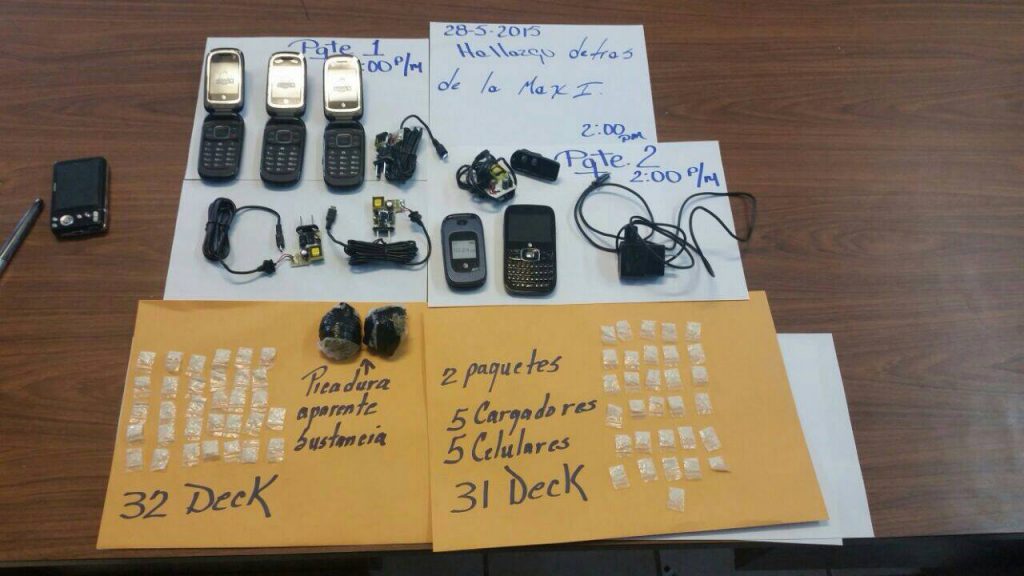 Pqte 1
2:00 P/M
28-5-2015
Hallazgo detras
de la Max I.
2:00 pm
Pqte. 2
2:00 P/M
Picadura
aparente
sustancia
32 Deck
2 paquetes
5 Cargadores
5 Celulares
31 Deck